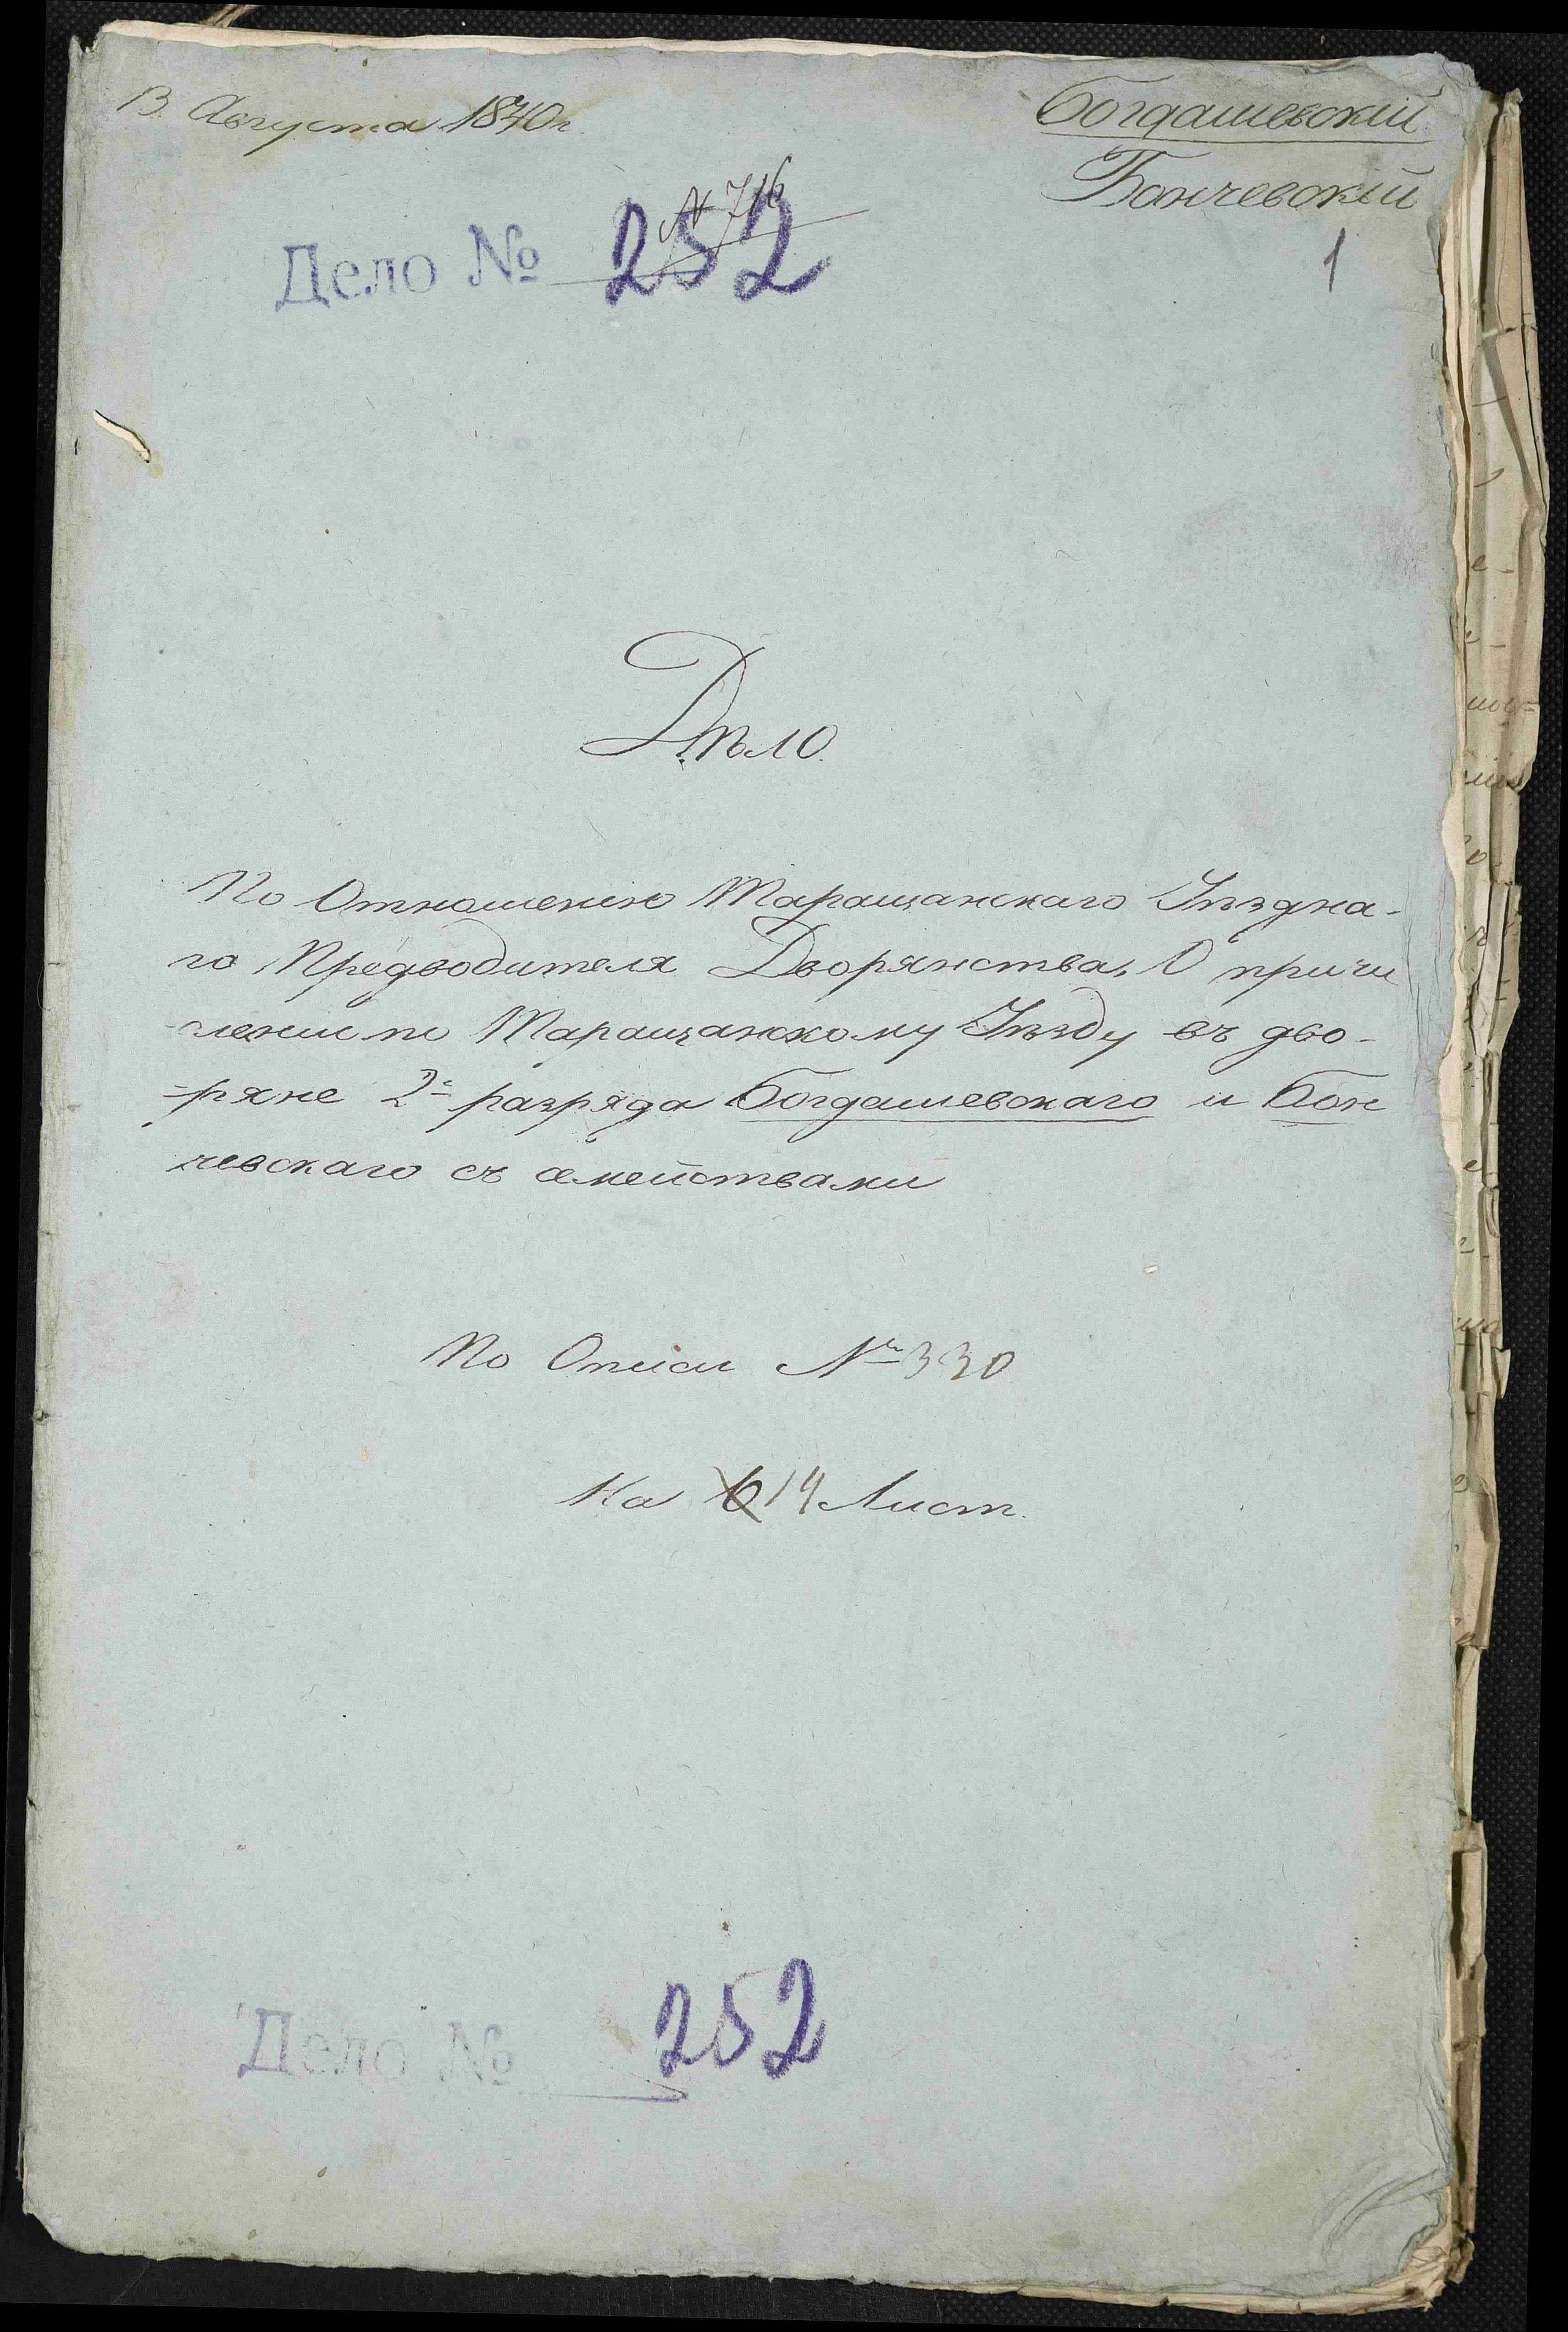 13. Августа 1840 г.
Богдашевскій
Бончевскій
1
N 716
Дело № 252
Дѣло.
По Отношенію Таращанскаго Уѣздна-
го Предводителя Дворянства, О причи
-сленіи по Таращанскому Уѣзду въ дво-
-ряне 2го разряда Богдашевскаго и Бон
чевскаго съ семействами
По Описи № 330
На 6 14 Лист.
Дело № 252